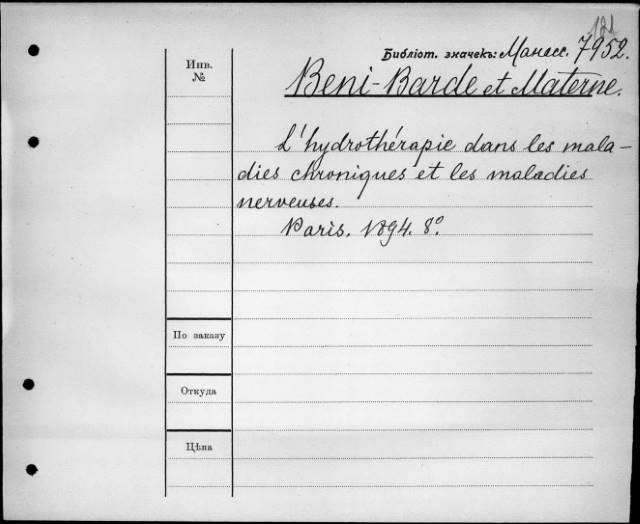 Библіот. значекъ: Манасс. 7952.
Инв.
№
Beni-Barde et Materne.
L'hydrothérapie dans les mala-
dies chroniques et les maladies
nerveuses.
Paris. 1894. 8°.
По заказу
Откуда
Цѣна